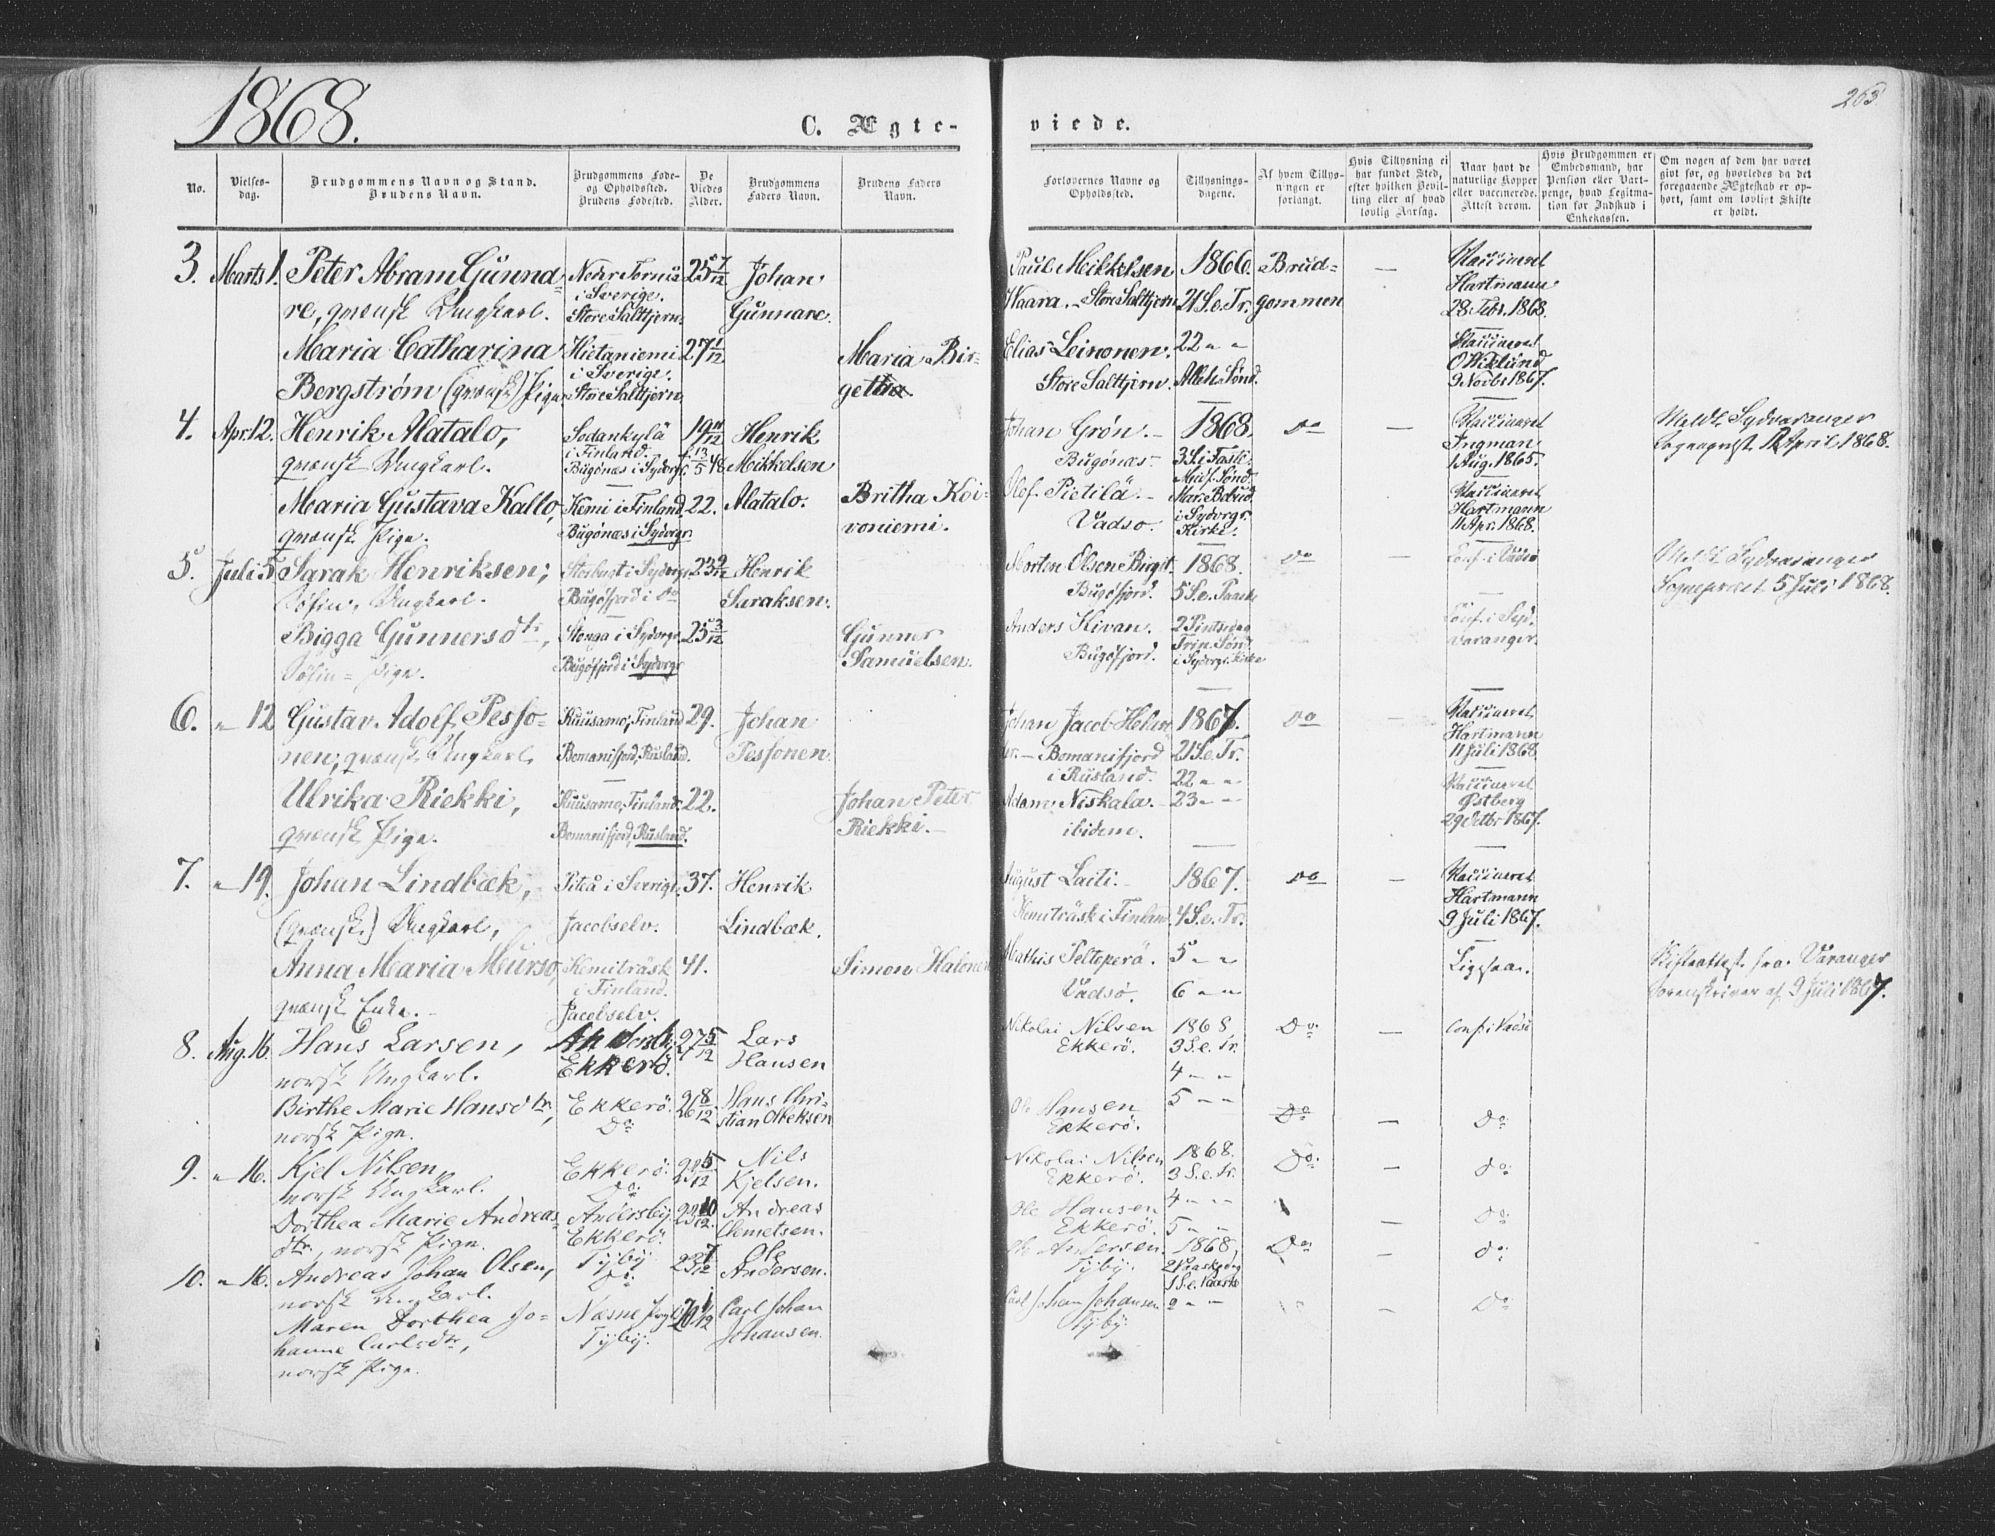 1868.
C. Ægte-
viede.
265
No.
Vielses-
dag.
Brudgommens Navn og Stand.
Brudens Navn.
Brudgommens Føde-
og Opholdssted.
Brudens Fødested.
De
Viedes
Alder.
Brudgommens
Faders Navn.
Brudens Faders
Navn.
Forlovernes Navne og
Opholdssted.
Tillysnings-
dagene.
Af hvem Tillys-
ningen er
forlangt.
Hvis Tillysning ei
har fundet Sted,
efter hvilken Bevil-
ling eller af hvad
lovlig Aarsag.
Naar havt de
naturlige Kopper
eller vaccinerede.
Attest derom.
Hvis Brudgommen er
Embedsmand, har
Pension eller Vart-
penge, hvad Legitima-
tion for Indskud i
Enkekassen.
Om nogen af dem har været
givt før, og hvorledes da det
foregaaende Ægteskab er op-
hørt, samt om lovligt Skifte
er holdt.
3. Marts 1. Peter Abram Gunna-
re, qvænsk Ungkarl.
Neder Torneå
i Sverige.
Store Salttjern.
25 7/12
Johan
Gunnare.
Paul Mikkelsen
Waara. - Store Saltjern
1866.
21 S. e. Tr.
Brud-
gommen
—
Vaccineret
Hartmann
28 Febr. 1868.
Maria Catharina
Bergstrøm (qvænsk) Pige
Hietaniemi
i Sverige.
Store Salttjern
27 1/12
Maria Bir-
getha.
Elias Leinonen.
Store Saltjern.
22 " "
Alleh. Sønd.
Vaccineret
O Wiklund
9 Novbr 1867.
4. Apr. 12. Henrik Alatalo,
qvænsk Ungkarl.
Sodankylä
i Finland.
Bugønæs i Sydvrgr.
19 11/12
f. 13/5 48.
Henrik
Mikkelsen
Alatalo.
Johan Grøn. -
Bugønæs -
1868.
3 S. i Faste
Midf. Sønd.
Mar. Bebud.
i Sydvrgr.
Kirke.
Do
—
Vaccineret
Ingman
1 Aug. 1865.
Meldt Sydvaranger
Sognepræst 12 April 1868.
Maria Gustava Kallo,
qvænsk Pige.
Kemi i Finland.
Bugønæs i Sydvrgr.
22.
Britha Koi-
voniemi.
Olof Pietilä. -
Vadsø.
Vaccineret
Hartmann
11 Apr. 1868.
5. Juli 5 Sarak Henriksen;
Søfin, Ungkarl.
Bugøfjord i do
23 9/12
Henrik
Saraksen.
Morten Olsen Birgit.
Bugøfjord.
1868.
5 S. e. Paaske
Do
—
Conf. i Vadsø
Meldt Sydvaranger
Sognepræst 5 Juli 1868.
Bigga Gunnersdtr,
Søfin - Pige.
Stonga i Sydvrgr.
Bugøfjord i Sydvrgr
25 3/12
Gunner
Samuelsen.
Anders Kivan.
Bugøfjord.
2 Pintsedag
Trin. Sønd.
i Sydvrgr. Kirke
Conf. i Syd-
varanger.
6. " 12 Gustav Adolf Pesso-
nen, qvænsk Ungkarl,
Kuusamo, Finland
Bomanifjord, Rusland.
29.
Johan
Pessonen.
Johan Jacob Helan
der. - Bomanifjord
i Rusland.
1867.
21 S. e. Tr.
22 " "
Do
—
Vaccineret
Hartmann
11 Juli 1868
Ulrika Riekki,
qvænsk Pige.
Kuusamo, Finland.
Bomanifjord, Rusland.
22.
Johan Peter
Riekki. -
Adam Niskala. -
ibidem.
23 " "
Vaccineret
Østberg
29 Octbr 1867.
7. " 19. Johan Lindbæk,
(qvænsk) Ungkarl,
Piteå i Sverige
Jacobselv.
37.
Henrik
Lindbæk.
August Laiti. -
Kemiträsk i Finland
1867.
4 S. e. Tr.
Do
—
Vaccineret
Hartmann
9 Juli 1867.
Anna Maria Meurso,
qvænsk Enke. -
Kemiträsk
i Finland.
Jacobselv.
41.
Simon Halonen
Mathis Peltoperä.
Vadsø.
5 " "
6 " "
Ligesaa.
Skifteattest fra Varanger
Sorenskriver af 9 Juli 1867.
8. Aug. 16. Hans Larsen,
norsk Ungkarl.
Andersby
Ekkerø.
27 5/12
Lars
Hansen
Nikolai Nilsen
Ekkerø.
1868,
3 S. e. Tr.
4 " "
Do
—
Conf. i Vadsø
Birthe Marie Hansdtr,
norsk Pige.
Ekkerø.
Do
26 8/12
Hans Chri-
stian Olbeksen
Ole Hansen
Ekkerø.
5 " "
Do
—
Do
9. " 16. Kjel Nilsen
norsk Ungkarl.
Ekkerø.
Do.
28 5/12
Nils
Kjelsen.
Nikolai Nilsen
Ekkerø.
1868.
3 S. e. Tr.
4 " "
Do
—
do
Dorthea Marie Andreas-
dtr, norsk Pige.
Andersby
Ekkerø.
23 10/12.
Andreas
Clemetsen.
Ole Hansen
Ekkerø.
5 " "
—
Do
10. " 16. Andreas Johan Olsen,
norsk Ungkarl.
Tyby
Do
23 7/12
Ole
Andersen.
Ole Andersen.
Tyby.
1868,
2 Paaskedag
1 S. e. Paaske
Do
—
do
Maren Dorthea Jo-
hanne Carlsdtr,
norsk Pige.
Tyby.
20 1/12
Carl Johan
Johansen.
Carl Johan Johansen
Tyby.
2 " "
—
Do